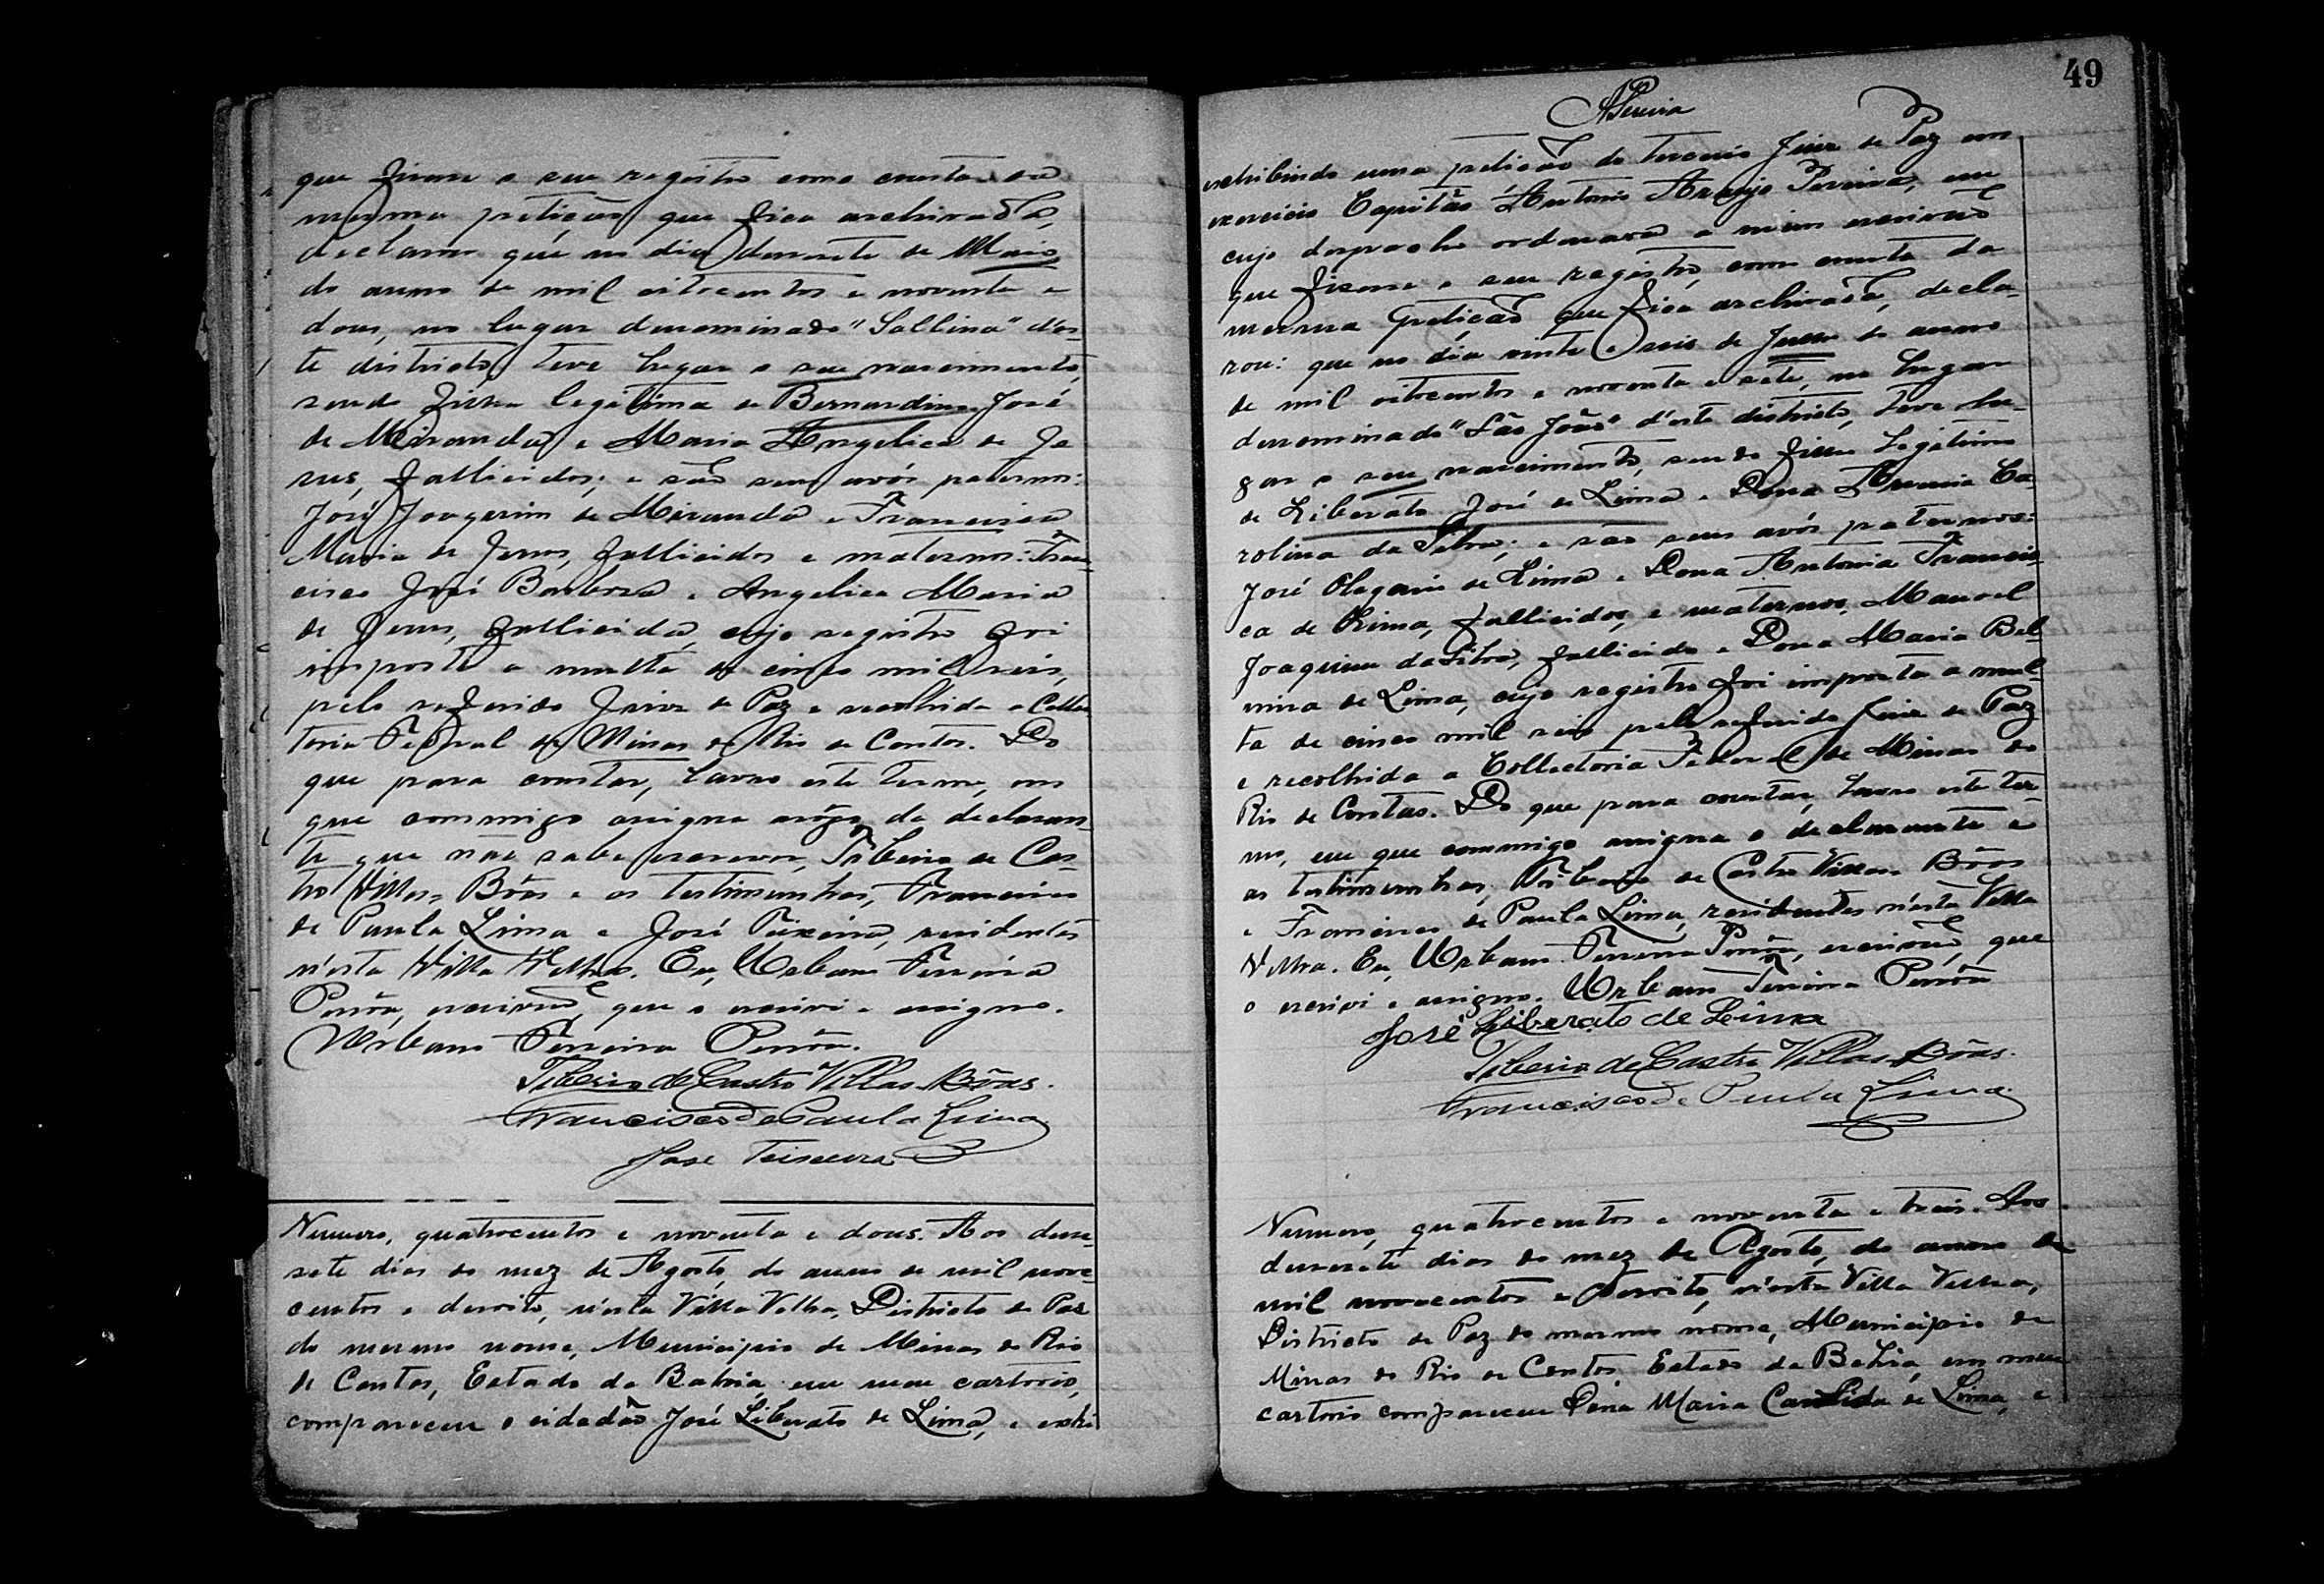 que fizesse o seu registro como consta da
mesma petição que fica archivada,
declarou que no dia desesete de Maio
do anno de mil oitocentos e noventa e
dous, no lugar denominado "Sallina" d'es-
te districto, teve lugar o seu nascimento,
sendo filha legitima de Bernardino José
de Miranda e Maria Angelica de Je
sus, fallicidos; e são seus avós paternos:
José Joaquim de Miranda e Francisca
Maria de Jesus, fallicidos e maternos: Fran-
cisco José Barboza e Angelica Maria
de Jesus, fallicida, cujo registro foi
imposto a multa de cinco mil reis,
pelo referido Juiz de Paz e recolhida a Collec
toria Federal de Minas do Rio de Contas. Do
que para constar, lavro este termo, em
que commigo assigna arôgo da declaran-
te que não sabe escrever, Tiberio de Cas-
tro Villas Bôas e as testimunhas, Francisco
de Paula Lima e José Teixeira, residentes
n'esta Villa Velha. Eu, Urbano Ferreira
escrivão, que o escrivi e assigno.
Urbano Ferreira
Tiberio de Castro Villas Bôas.
Francisco de Paula Lima
José Teixeira
Numero, quatrocentos e noventa e dous. Aos dese-
sete dias do mez de Agosto, do anno de mil nove-
centos e desoito, n'esta Villa Velha, Districto de Paz
do mesmo nome, Municipio de Minas do Rio
de Contas, Estado da Bahia em meu cartorio,
compareceu o cidadão José Liberato de Lima, e exhi
49
APereira
exhibindo uma petição do terceiro Juiz de Paz em
exercicio Capitão Antonio Araujo Pereira, em
cujo despacho ordenava a mim escrivão
que fizesse o seu registro, como consta da
mesma petição que fica archivada, decla-
rou: que no dia vinte e seis de Junho do anno
de mil oitocentos e noventa e sete, no lugar
denominado "São João" d'este districto, teve lu-
gar o seu nascimento, sendo filho legitimo
de Liberato José de Lima e Dona Ca-
rolina da Silva; e são seus avós paternos:
José Olegario de Lima e Dona Antonia Francis-
ca de Lima, fallicidos, e maternos, Manoel
Joaquim da Silva, fallicido e Dona Maria Bel-
mina de Lima, cujo registro foi imposto a mul-
ta de cinco mil reis pelo referido Juiz de Paz
e recolhida a Collectoria Federal de Minas do
Rio de Contas. Do que para constar, lavro este ter-
mo, em que commigo assigna o declarante e
as testimunhas, Tiberio de Castro Villas Bôas
e Francisco de Paula Lima, residentes n'esta Villa
Velha. Eu, Urbano Ferreira escrivão, que
o escrivi e assigno. Urbano Ferreira
José Liberato de Lima
Tiberio de Castro Villas Bôas.
Francisco de Paula Lima
Numero, quatrocentos e noventa e treis. Aos
desesete dias do mez de Agosto, do anno de
mil novecentos e desoito, n'esta Villa Velha,
Districto de Paz do mesmo nome, Municipio de
Minas do Rio de Contas, Estado da Bahia, em meu
cartorio compareceu Dona Maria Candida de Lima, e